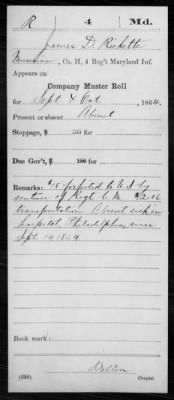 R 4 Md.
James D. Ricketts
, Co. H, 4 Reg't Maryland Inf.
Appears on
Company Muster Roll
for Sept & Oct, 1864.
Present or absent Absent
Stoppage, $ 100 for
Due Gov't, $ 100 for
Remarks: $10 forfeited to U.S. by
sentence of Regt C.M. $2.06
transportation Absent sick in
hospital, Philadelphia since
Sept. 1864.
Book mark:
(358) Copyist.